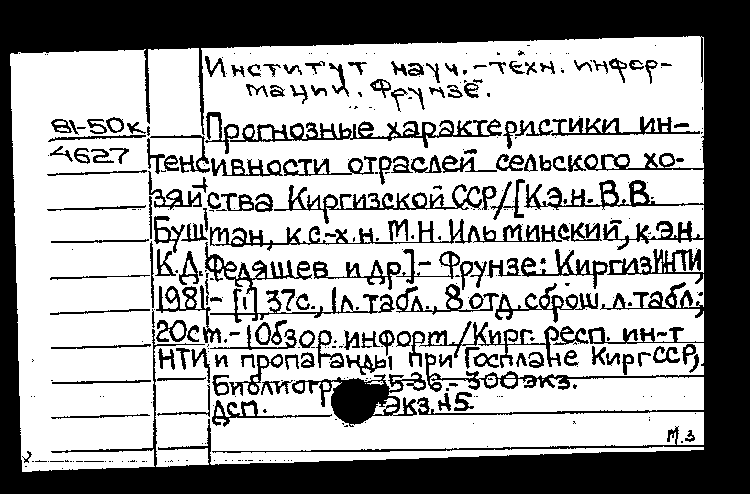 Институт науч.-техн. инфор-
мации. Фрунзе.
81-50к
4627
Прогнозные характеристики ин-
тенсивности отраслей сельского хо-
зяйства Киргизской ССР/[К.э.н. В.В.
Буштан, к.с.-х.н. М.Н. Ильминский, к.э.н.
К.Д. Федяшев и др.].- Фрунзе: КиргизИНТИ,
1981.- [1], 37с., 1л. табл., 8 отд. сброш. л. табл.;
20см.- (Обзор. информ./Кирг. респ. ин-т
НТИ и пропаганды при Госплане Кирг ССР).
Библиогр.: 35-36.- 300экз.
ДСП. Экз. 45.
М.З